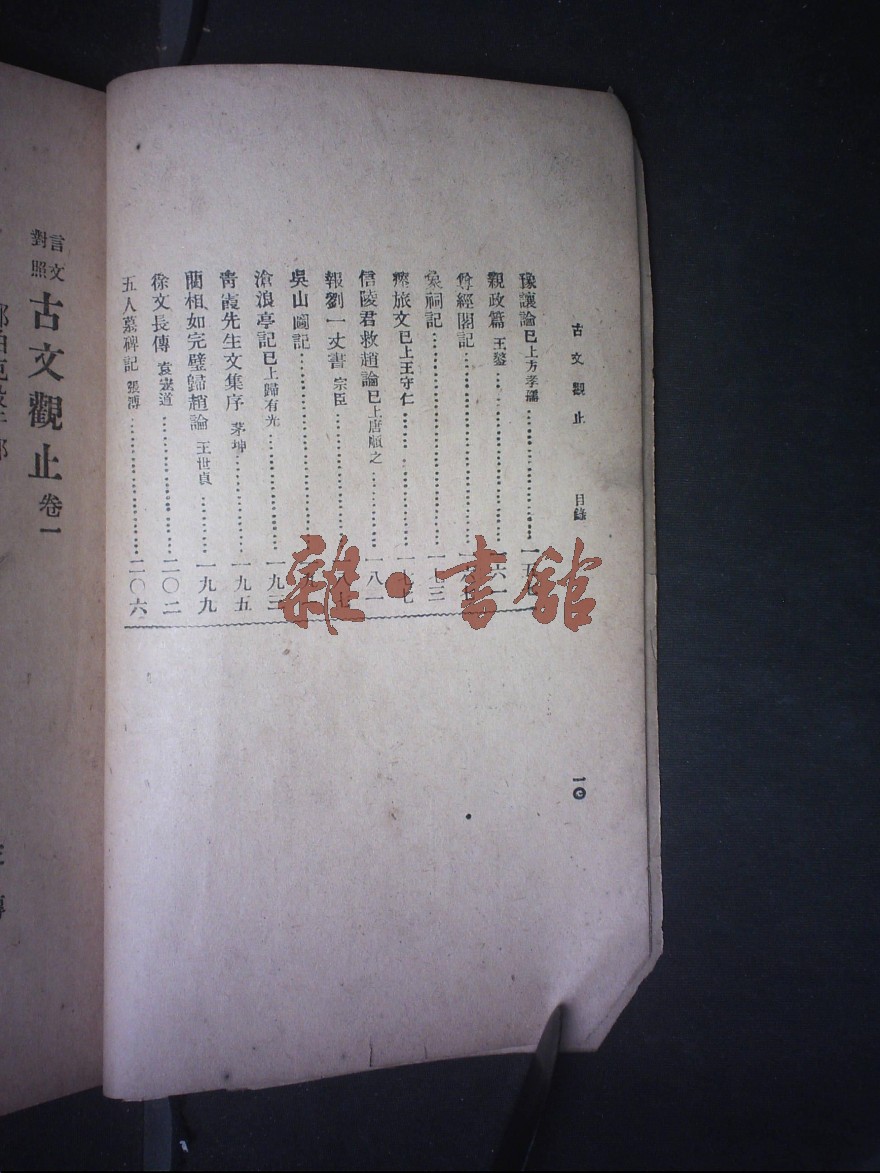 古文觀止 目錄
一〇
豫讓論 已上方孝孺 一五七
親政篇 王鏊 一六一
尊經閣記
象祠記 一七三
瘞旅文 已上王守仁 一七七
信陵君救趙論 已上唐順之 一八一
報劉一丈書 宗臣 一八七
吳山圖記
滄浪亭記 已上歸有光 一九三
青霞先生文集序 茅坤 一九五
藺相如完璧歸趙論 王世貞 一九九
徐文長傳 袁宏道 二〇二
五人墓碑記 張溥 二〇六
雜·書館
言文對照 古文觀止 卷一